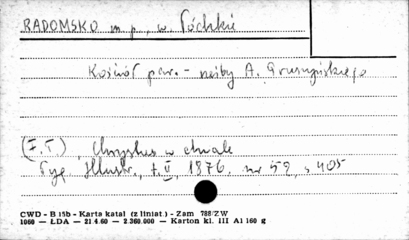 RADOMSKO m p., w. Łódzkie
Kościół par. - rzeźby A. Gruszyńskiego
(I.T.) Chrystus w chwale
Tyg. Illustr., t. II, 1876, nr 52, s 405
CWD - B 15b - Karta katal (z liniat.) - Zam 788/ZW
1060 — ŁDA — 21.4.60 — 2.360.000 — Karton kl. III A1 160 g